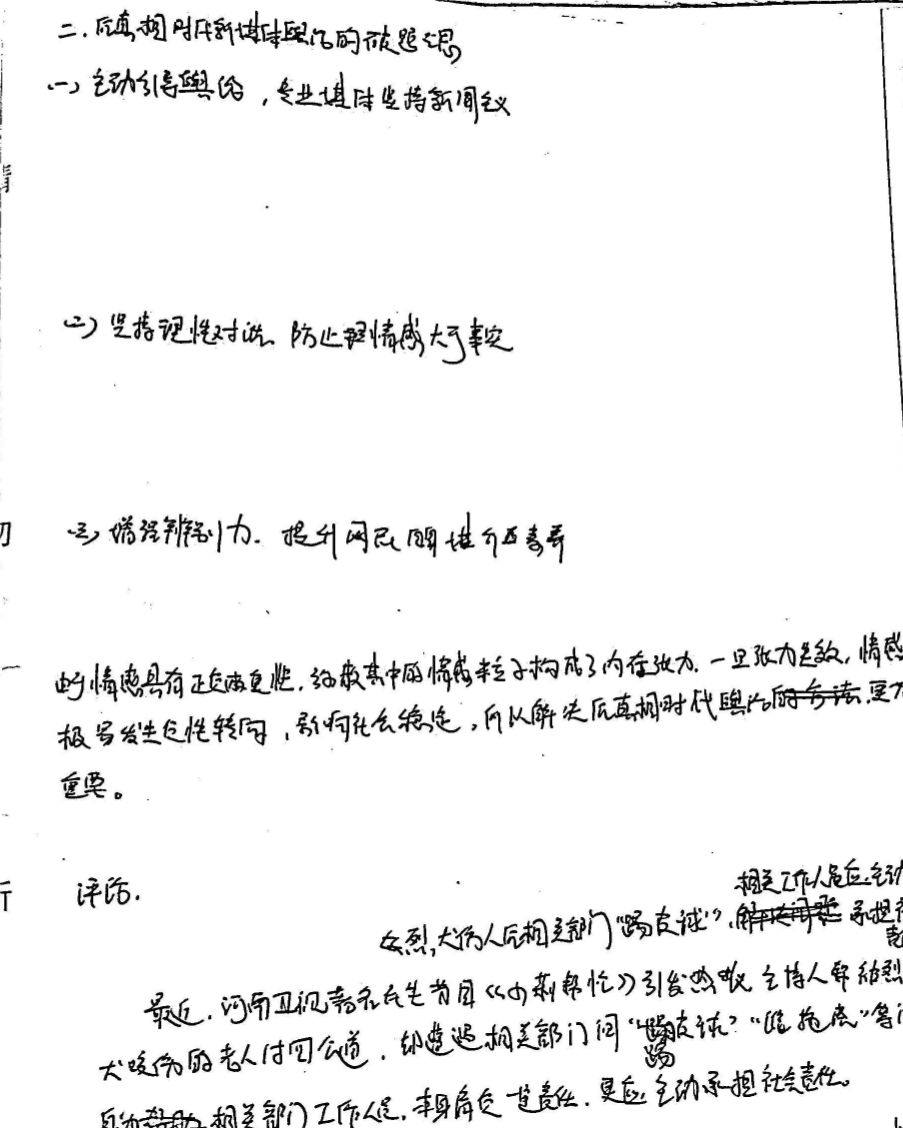 二.后真相时代新媒体舆论的破题之思
(一)主动引导舆论,专业媒体坚持新闻主义
(二)坚持理性对话、防止情感大于事实
(三)增强辨别力.提升网民媒介素养
的情感具有正负两重性.的情感粒子构成了内在张力.一旦张力失效,情感
极易发生负性转向,影响社会稳定,所以解决后真相时代舆论更为
重要。
评论.
相关工作人员应主动
女烈犬伤人后相关部门"踢皮球",承担社
最近.河南卫视著名民生节目《小莉帮忙》引发热议.主持人帮被烈
犬咬伤的老人讨回公道.却遭遇相关部门间"踢皮球"
踢
相关部门工作人员.本身肩负一定责任.更应主动承担社会责任。